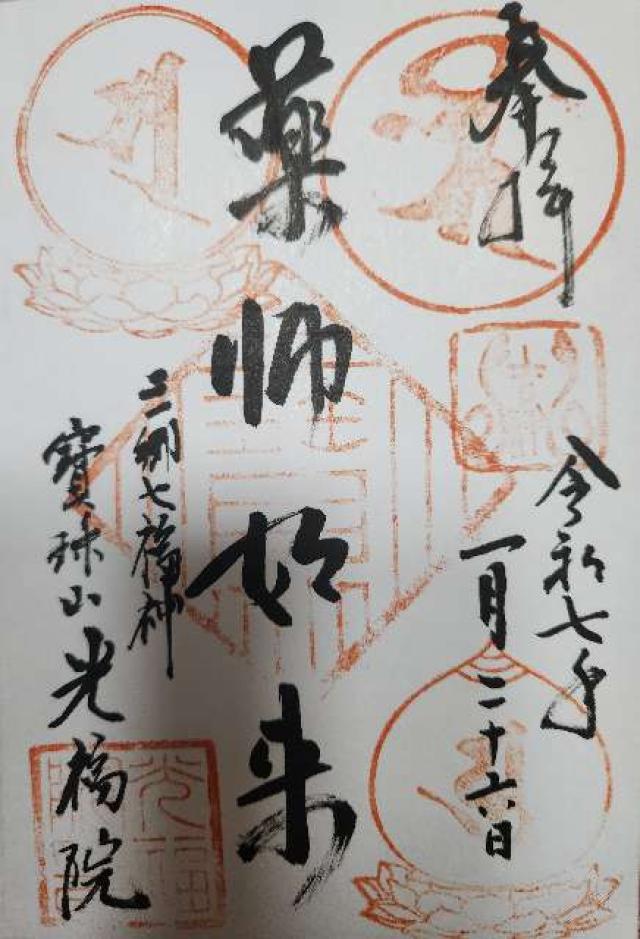 奉拝
令和七年
一月二十六日
薬師如来
三郷七福神
寳珠山光福院
光福